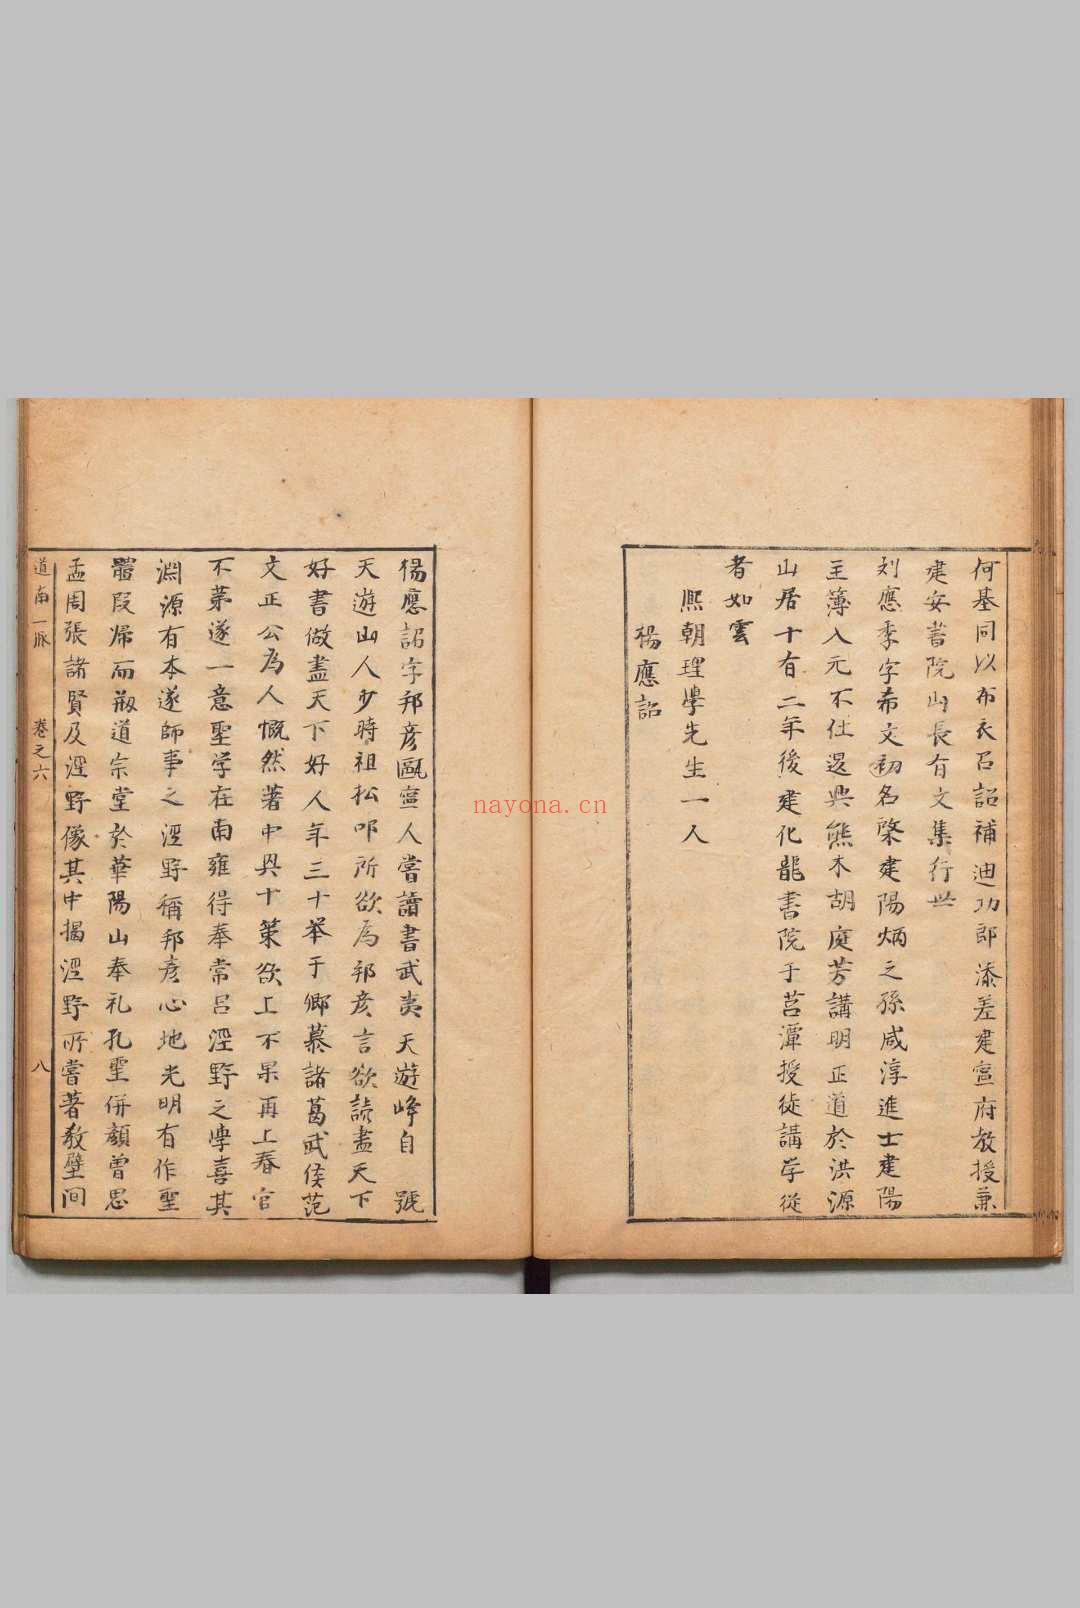 何基同以布衣召詔補迪功郎添差建寧府教授兼
建安書院山長有文集行世
刘應季字希文初名棨建陽炳之孫咸淳進士建陽
主簿入元不仕退與熊禾胡庭芳講明正道於洪源
山居十有二年後建化龍書院于莒潭授徒講学從
者如雲
熙朝理學先生一人
楊應詔
楊應詔字邦彥甌寧人嘗讀書武夷天遊峰自號
天遊山人少時祖松叩所欲為邦彥言欲讀盡天下
好書做盡天下好人年三十举于鄉慕諸葛武侯范
文正公為人慨然著中興十策欲上不果再上春官
不第遂一意聖学在南雍得奉常呂涇野之學喜其
淵源有本遂師事之涇野稱邦彥心地光明有作聖
體段歸而剏道宗堂於華陽山奉礼孔聖併顏曾思
孟周張諸賢及涇野像其中揭涇野所嘗著教壁间
道南一脉 卷之六 八
nayona.cn